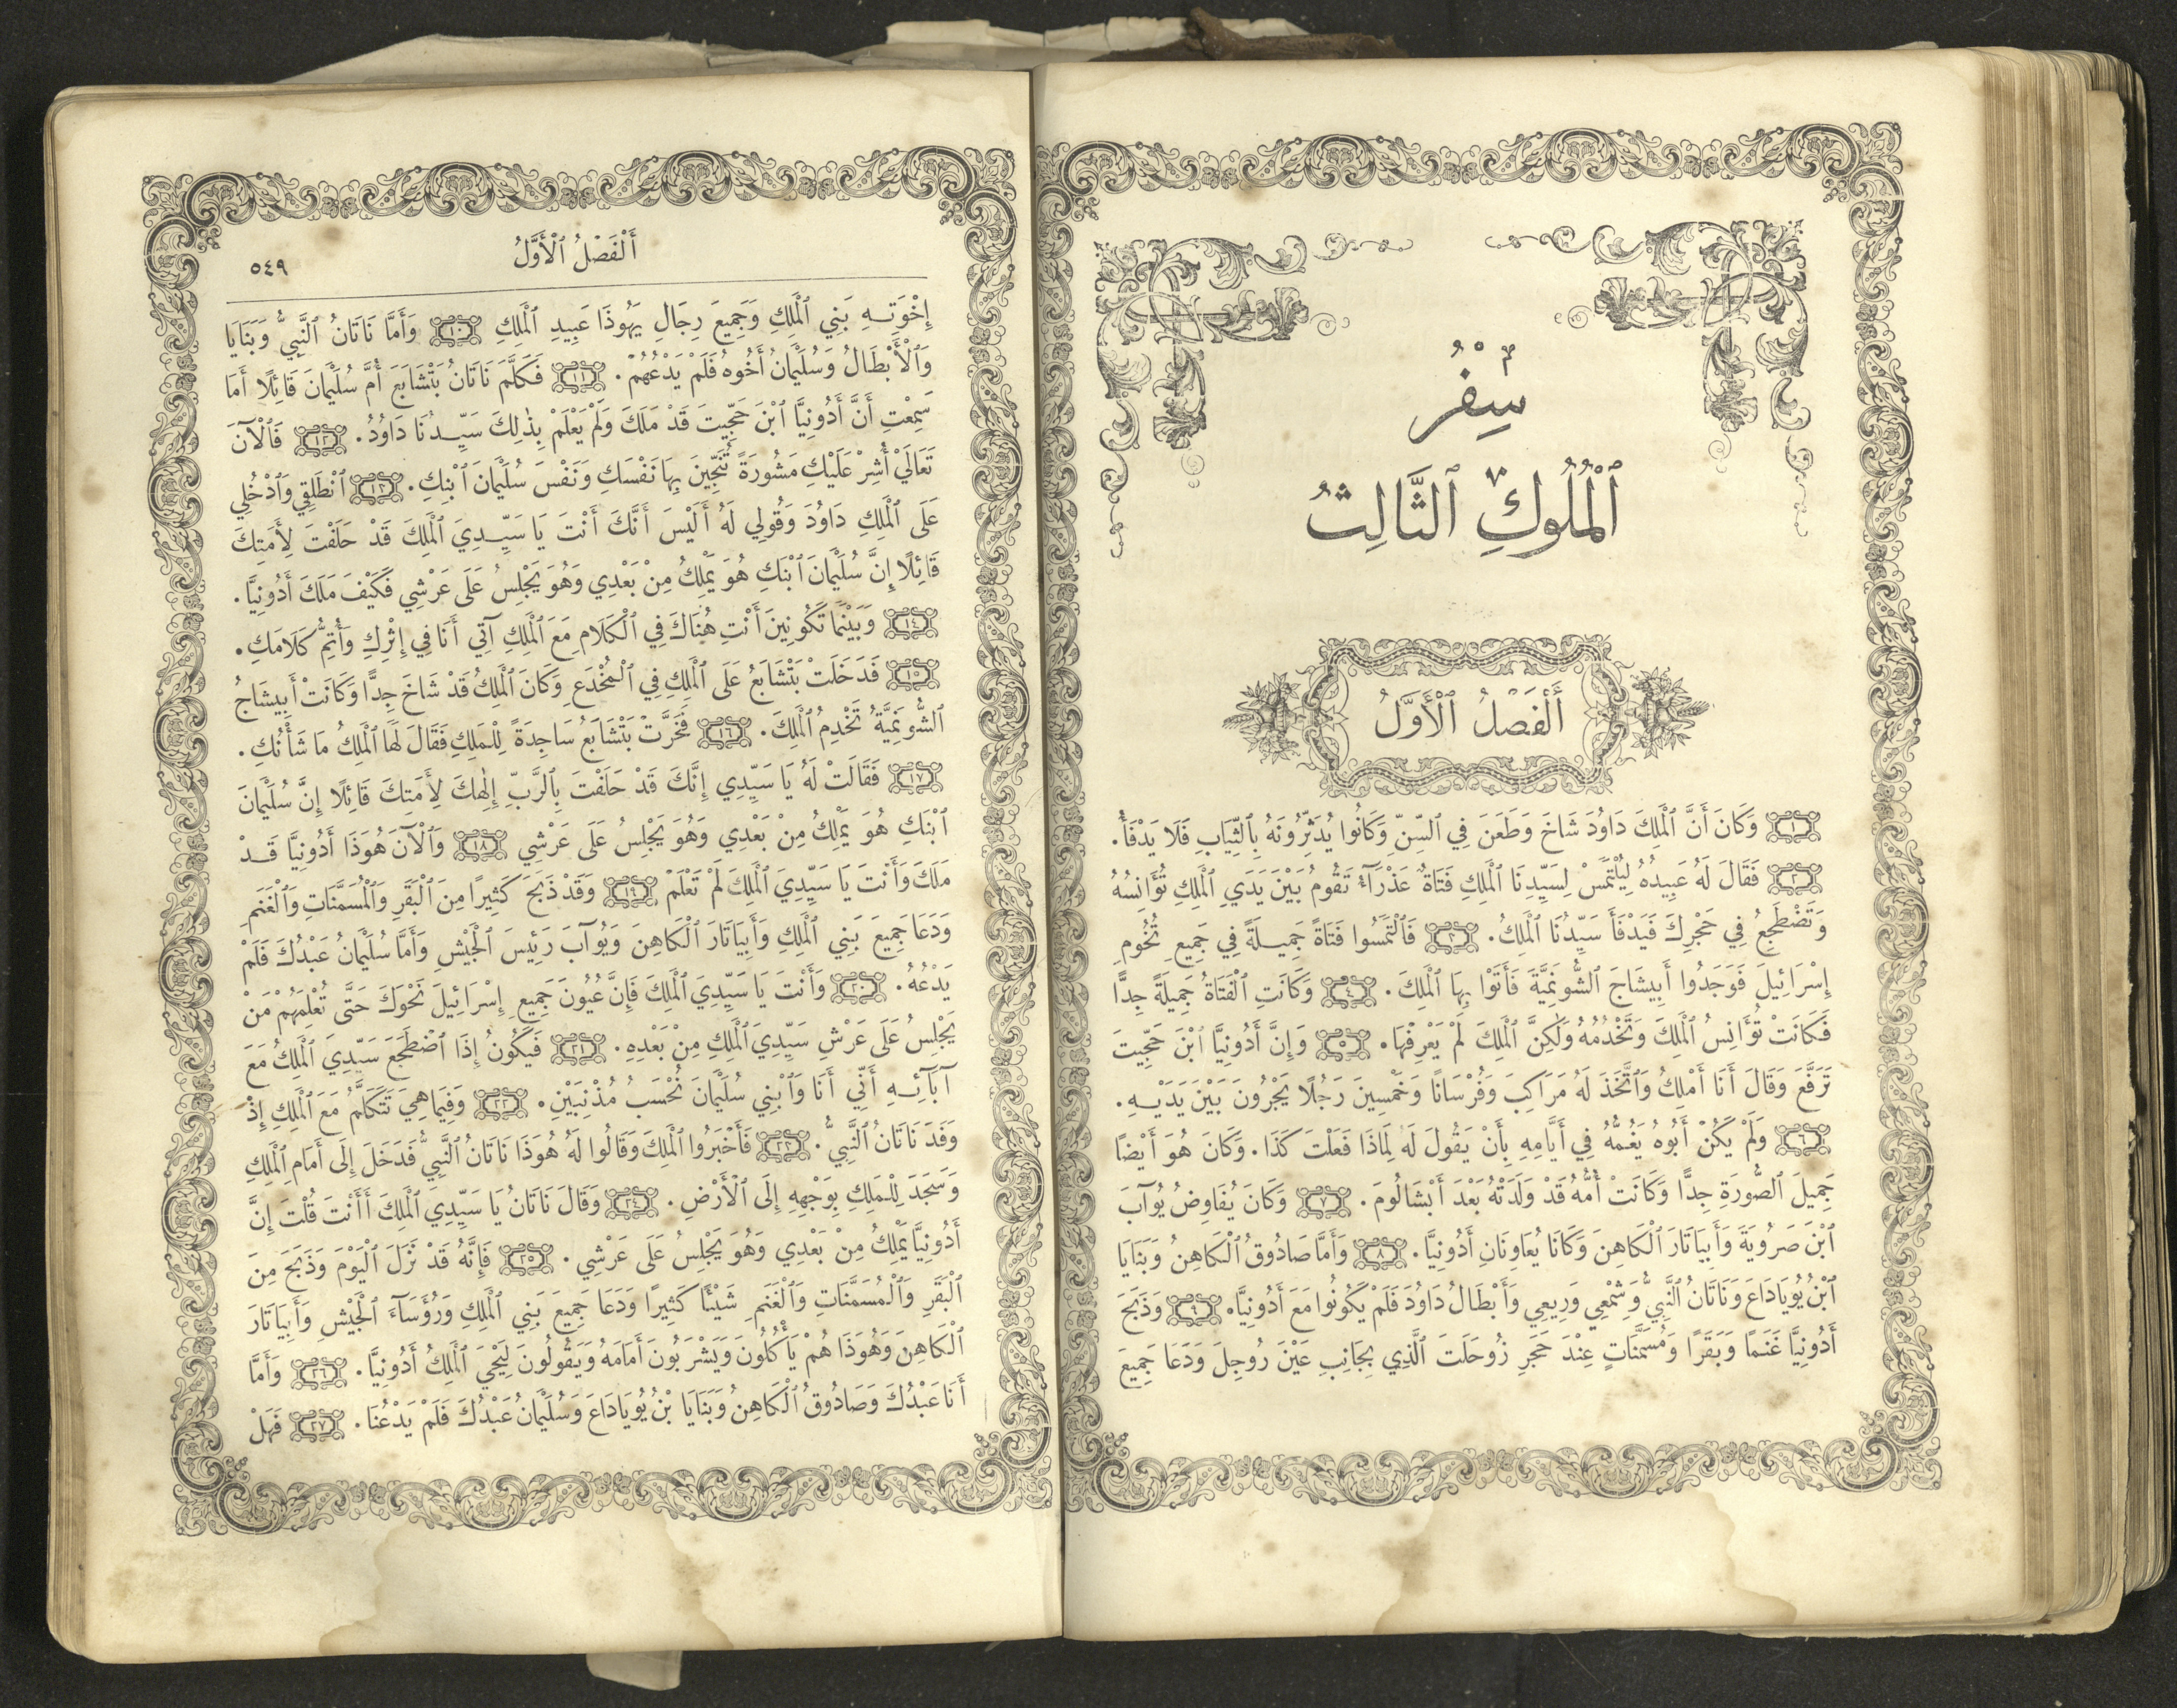 سِفْرُ
ٱلْمُلُوكِ ٱلثَّالِثُ
أَلْفَصْلُ ٱلْأَوَّلُ
١ وَكَانَ أَنَّ ٱلْمَلِكَ دَاوُدَ شَاخَ وَطَعَنَ فِي ٱلسِّنِّ وَكَانُوا يُدَثِّرُونَهُ بِٱلثِّيَابِ فَلَا يَدْفَأُ.
٢ فَقَالَ لَهُ عَبِيدُهُ لِيُلْتَمَسْ لِسَيِّدِنَا ٱلْمَلِكِ فَتَاةٌ عَذْرَآءُ تَقُومُ بَيْنَ يَدَيِ ٱلْمَلِكِ تُؤَانِسُهُ
وَتَضْطَجِعُ فِي حَجْرِكَ فَيَدْفَأَ سَيِّدُنَا ٱلْمَلِكُ. ٣ فَٱلْتَمَسُوا فَتَاةً جَمِيلَةً فِي جَمِيعِ تُخُومِ
إِسْرَائِيلَ فَوَجَدُوا أَبِيشَاجَ ٱلشُّونَمِيَّةَ فَأَتَوْا بِهَا ٱلْمَلِكَ. ٤ وَكَانَتِ ٱلْفَتَاةُ جَمِيلَةً جِدًّا
فَكَانَتْ تُؤَانِسُ ٱلْمَلِكَ وَتَخْدُمُهُ وَلَكِنَّ ٱلْمَلِكَ لَمْ يَعْرِفْهَا. ٥ وَإِنَّ أَدُونِيَّا ٱبْنَ حَجِّيتَ
تَرَفَّعَ وَقَالَ أَنَا أَمْلِكُ وَٱتَّخَذَ لَهُ مَرَاكِبَ وَفُرْسَانًا وَخَمْسِينَ رَجُلًا يَجْرُونَ بَيْنَ يَدَيْهِ.
٦ وَلَمْ يَكُنْ أَبُوهُ يَغُمُّهُ فِي أَيَّامِهِ بِأَنْ يَقُولَ لَهُ لِمَاذَا فَعَلْتَ كَذَا. وَكَانَ هُوَ أَيْضًا
جَمِيلَ ٱلصُّورَةِ جِدًّا وَكَانَتْ أُمُّهُ قَدْ وَلَدَتْهُ بَعْدَ أَبْشَالُومَ. ٧ وَكَانَ يُفَاوِضُ يُوآبَ
ٱبْنَ صَرُويَةَ وَأَبِيَاتَارَ ٱلْكَاهِنَ وَكَانَا يُعَاوِنَانِ أَدُونِيَّا. ٨ وَأَمَّا صَادُوقُ ٱلْكَاهِنُ وَبَنَايَا
ٱبْنُ يُويَادَاعَ وَنَاتَانُ ٱلنَّبِيُّ وَشِمْعِي وَرِيعِي وَأَبْطَالُ دَاوُدَ فَلَمْ يَكُونُوا مَعَ أَدُونِيَّا. ٩ وَذَبَحَ
أَدُونِيَّا غَنَمًا وَبَقَرًا وَمُسَمَّنَاتٍ عِنْدَ حَجَرِ زُوحَلَتَ ٱلَّذِي بِجَانِبِ عَيْنَ رُوجِلَ وَدَعَا جَمِيعَ
أَلْفَصْلُ ٱلْأَوَّلُ ٥٤٩
إِخْوَتِهِ بَنِي ٱلْمَلِكِ وَجَمِيعَ رِجَالِ يَهُوذَا عَبِيدِ ٱلْمَلِكِ ١٠ وَأَمَّا نَاتَانُ ٱلنَّبِيُّ وَبَنَايَا
وَٱلْأَبْطَالُ وَسُلَيْمَانُ أَخُوهُ فَلَمْ يَدْعُهُمْ. ١١ فَكَلَّمَ نَاتَانُ بَتْشَابَعَ أُمَّ سُلَيْمَانَ قَائِلًا أَمَا
سَمِعْتِ أَنَّ أَدُونِيَّا ٱبْنَ حَجِّيتَ قَدْ مَلَكَ وَلَمْ يَعْلَمْ بِذٰلِكَ سَيِّدُنَا دَاوُدُ. ١٢ فَٱلْآنَ
تَعَالَيْ أُشِرْ عَلَيْكِ مَشُورَةً تُنَجِّينَ بِهَا نَفْسَكِ وَنَفْسَ سُلَيْمَانَ ٱبْنِكِ. ١٣ ٱنْطَلِقِي وَٱدْخُلِي
عَلَى ٱلْمَلِكِ دَاوُدَ وَقُولِي لَهُ أَلَيْسَ أَنَّكَ أَنْتَ يَا سَيِّدِيَ ٱلْمَلِكَ قَدْ حَلَفْتَ لِأَمَتِكَ
قَائِلًا إِنَّ سُلَيْمَانَ ٱبْنَكِ هُوَ يَمْلِكُ مِنْ بَعْدِي وَهُوَ يَجْلِسُ عَلَى عَرْشِي فَكَيْفَ مَلَكَ أَدُونِيَّا.
١٤ وَبَيْنَمَا تَكُونِينَ أَنْتِ هُنَاكَ فِي ٱلْكَلَامِ مَعَ ٱلْمَلِكِ آتِي أَنَا فِي إِثْرِكِ وَأُتِمُّ كَلَامَكِ.
١٥ فَدَخَلَتْ بَتْشَابَعُ عَلَى ٱلْمَلِكِ فِي ٱلْمُخْدَعِ وَكَانَ ٱلْمَلِكُ قَدْ شَاخَ جِدًّا وَكَانَتْ أَبِيشَاجُ
ٱلشُّونَمِيَّةُ تَخْدِمُ ٱلْمَلِكَ. ١٦ فَخَرَّتْ بَتْشَابَعُ سَاجِدَةً لِلْمَلِكِ فَقَالَ لَهَا ٱلْمَلِكُ مَا شَأْنُكِ.
١٧ فَقَالَتْ لَهُ يَا سَيِّدِي إِنَّكَ قَدْ حَلَفْتَ بِٱلرَّبِّ إِلٰهِكَ لِأَمَتِكَ قَائِلًا إِنَّ سُلَيْمَانَ
ٱبْنَكِ هُوَ يَمْلِكُ مِنْ بَعْدِي وَهُوَ يَجْلِسُ عَلَى عَرْشِي ١٨ وَٱلْآنَ هُوَذَا أَدُونِيَّا قَدْ
مَلَكَ وَأَنْتَ يَا سَيِّدِيَ ٱلْمَلِكَ لَمْ تَعْلَمْ ١٩ وَقَدْ ذَبَحَ كَثِيرًا مِنَ ٱلْبَقَرِ وَٱلْمُسَمَّنَاتِ وَٱلْغَنَمِ
وَدَعَا جَمِيعَ بَنِي ٱلْمَلِكِ وَأَبِيَاتَارَ ٱلْكَاهِنَ وَيُوآبَ رَئِيسَ ٱلْجَيْشِ وَأَمَّا سُلَيْمَانُ عَبْدُكَ فَلَمْ
يَدْعُهُ. ٢٠ وَأَنْتَ يَا سَيِّدِيَ ٱلْمَلِكَ فَإِنَّ عُيُونَ جَمِيعِ إِسْرَائِيلَ نَحْوَكَ حَتَّى تُعْلِمَهُمْ مَنْ
يَجْلِسُ عَلَى عَرْشِ سَيِّدِيَ ٱلْمَلِكِ مِنْ بَعْدِهِ. ٢١ فَيَكُونُ إِذَا ٱضْطَجَعَ سَيِّدِيَ ٱلْمَلِكُ مَعَ
آبَآئِهِ أَنِّي أَنَا وَٱبْنِي سُلَيْمَانَ نُحْسَبُ مُذْنِبَيْنِ. ٢٢ وَفِيمَا هِيَ تَتَكَلَّمُ مَعَ ٱلْمَلِكِ إِذْ
وَفَدَ نَاتَانُ ٱلنَّبِيُّ. ٢٣ فَأَخْبَرُوا ٱلْمَلِكَ وَقَالُوا لَهُ هُوَذَا نَاتَانُ ٱلنَّبِيُّ فَدَخَلَ إِلَى أَمَامِ ٱلْمَلِكِ
وَسَجَدَ لِلْمَلِكِ بِوَجْهِهِ إِلَى ٱلْأَرْضِ. ٢٤ وَقَالَ نَاتَانُ يَا سَيِّدِيَ ٱلْمَلِكَ أَأَنْتَ قُلْتَ إِنَّ
أَدُونِيَّا يَمْلِكُ مِنْ بَعْدِي وَهُوَ يَجْلِسُ عَلَى عَرْشِي. ٢٥ فَإِنَّهُ قَدْ نَزَلَ ٱلْيَوْمَ وَذَبَحَ مِنَ
ٱلْبَقَرِ وَٱلْمُسَمَّنَاتِ وَٱلْغَنَمِ شَيْئًا كَثِيرًا وَدَعَا جَمِيعَ بَنِي ٱلْمَلِكِ وَرُؤَسَآءَ ٱلْجَيْشِ وَأَبِيَاتَارَ
ٱلْكَاهِنَ وَهُوَذَا هُمْ يَأْكُلُونَ وَيَشْرَبُونَ أَمَامَهُ وَيَقُولُونَ لِيَحْيَ ٱلْمَلِكُ أَدُونِيَّا. ٢٦ وَأَمَّا
أَنَا عَبْدُكَ وَصَادُوقُ ٱلْكَاهِنُ وَبَنَايَا بْنُ يُويَادَاعَ وَسُلَيْمَانُ عَبْدُكَ فَلَمْ يَدْعُنَا. ٢٧ فَهَلْ